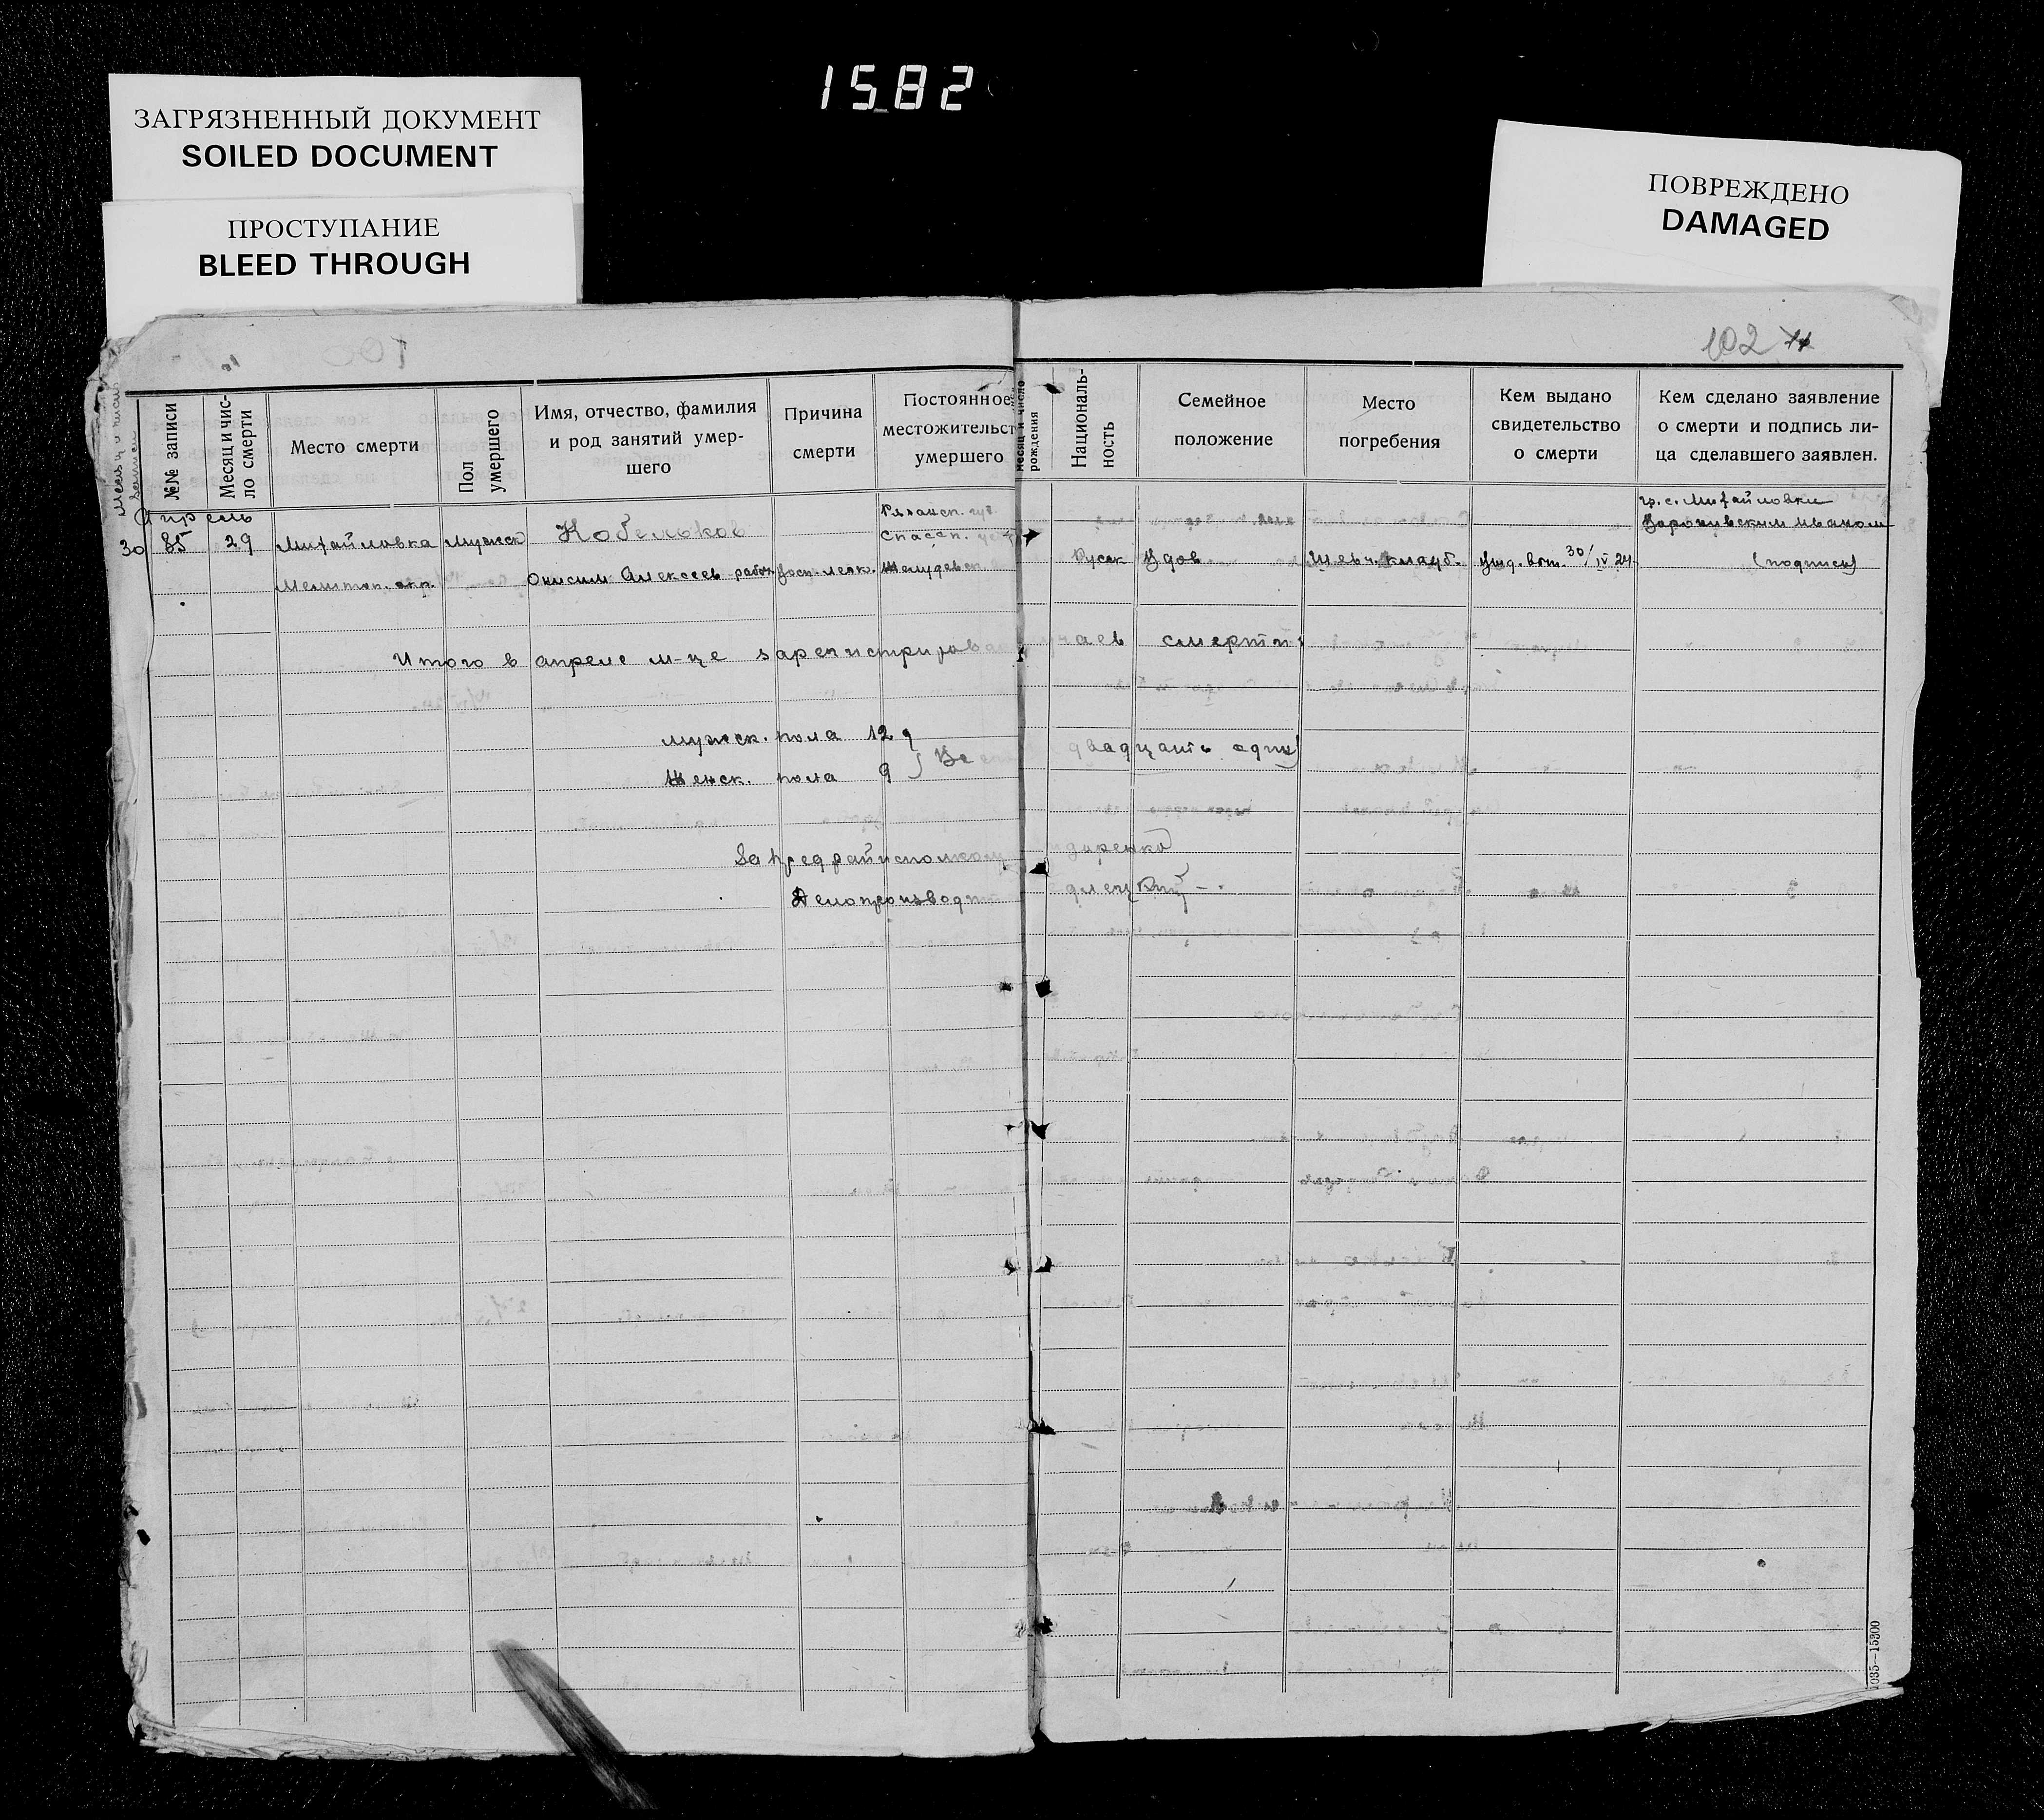 1582
ЗАГРЯЗНЕННЫЙ ДОКУМЕНТ
SOILED DOCUMENT
ПРОСТУПАНИЕ
BLEED THROUGH
ПОВРЕЖДЕНО
DAMAGED
102
Месяц и число
№№ записи
Месяц и чис-
ло смерти
Место смерти
Пол
умершего
Имя, отчество, фамилия
и род занятий умер-
шего
Причина
смерти
Постоянное
местожительст
умершего
месяц и число
рождения
Националь-
ность
Семейное
положение
Место
погребения
Кем выдано
свидетельство
о смерти
Кем сделано заявление
о смерти и подпись ли-
ца сделавшего заявлен.
Апрель
30 85 29 Михайловка Мужск Кобельков
Мелитоп. окр. Онисим Алексеев рабоч. Восп. легк.
Рязанск. губ.
Спасск.
Русск Удов Шевч. кладб. 30/IV 24
гр. с. Михайловки
Иваном
(подпись)
Итого в апреле м-це зарегистрирован чаев смерти
мужск. пола 12
женск. пола 9 Все двадцать один
За Предрайисполкому даренко
Делопроизводит
1035—15300